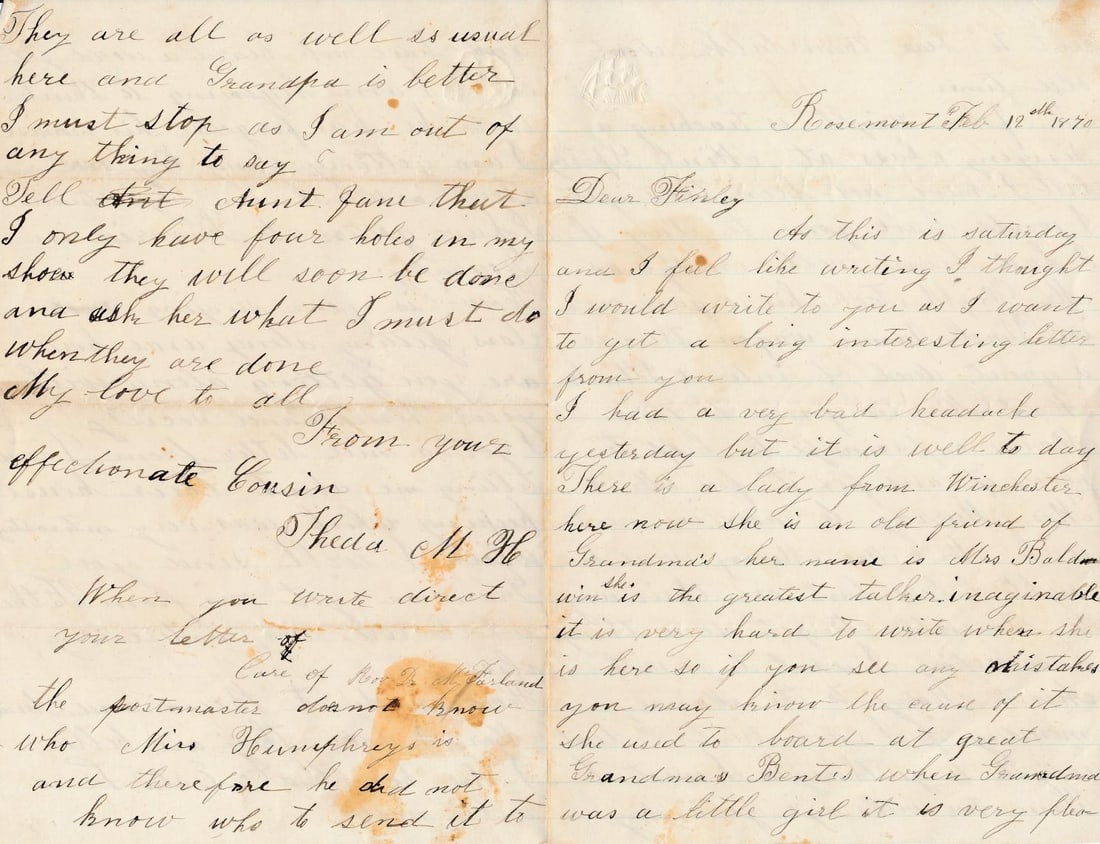 Rosemont Feb 12th 1870
Dear Finley
As this is saturday
and I feel like writing I thought
I would write to you as I want
to get a long interesting letter
from you
I had a very bad headache
yesterday but it is well to day
There is a lady from Winchester
here now she is an old friend of
Grandma's her name is Mrs Bald-
win she is the greatest talker inaginable
it is very hard to write when she
is here so if you see any mistakes
you may know the cause of it
she used to board at great
Grandma's Bents when Grandma
was a little girl it is very plea-
They are all as well as usual
here and Grandpa is better
I must stop as I am out of
any thing to say
Tell Ant Aunt Jane that
I only have four holes in my
shoes they will soon be done
and ask her what I must do
when they are done
My love to all
From your
affectionate Cousin
Theda M H
When you write direct
your letter
Care of Rev Dr McFarland
the postmaster does not know
who Miss Humphreys is
and therefore he did not
know who to send it to